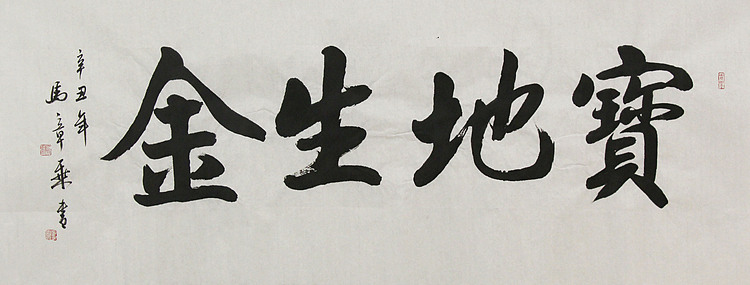 寶地生金
辛丑年
馬章乗書